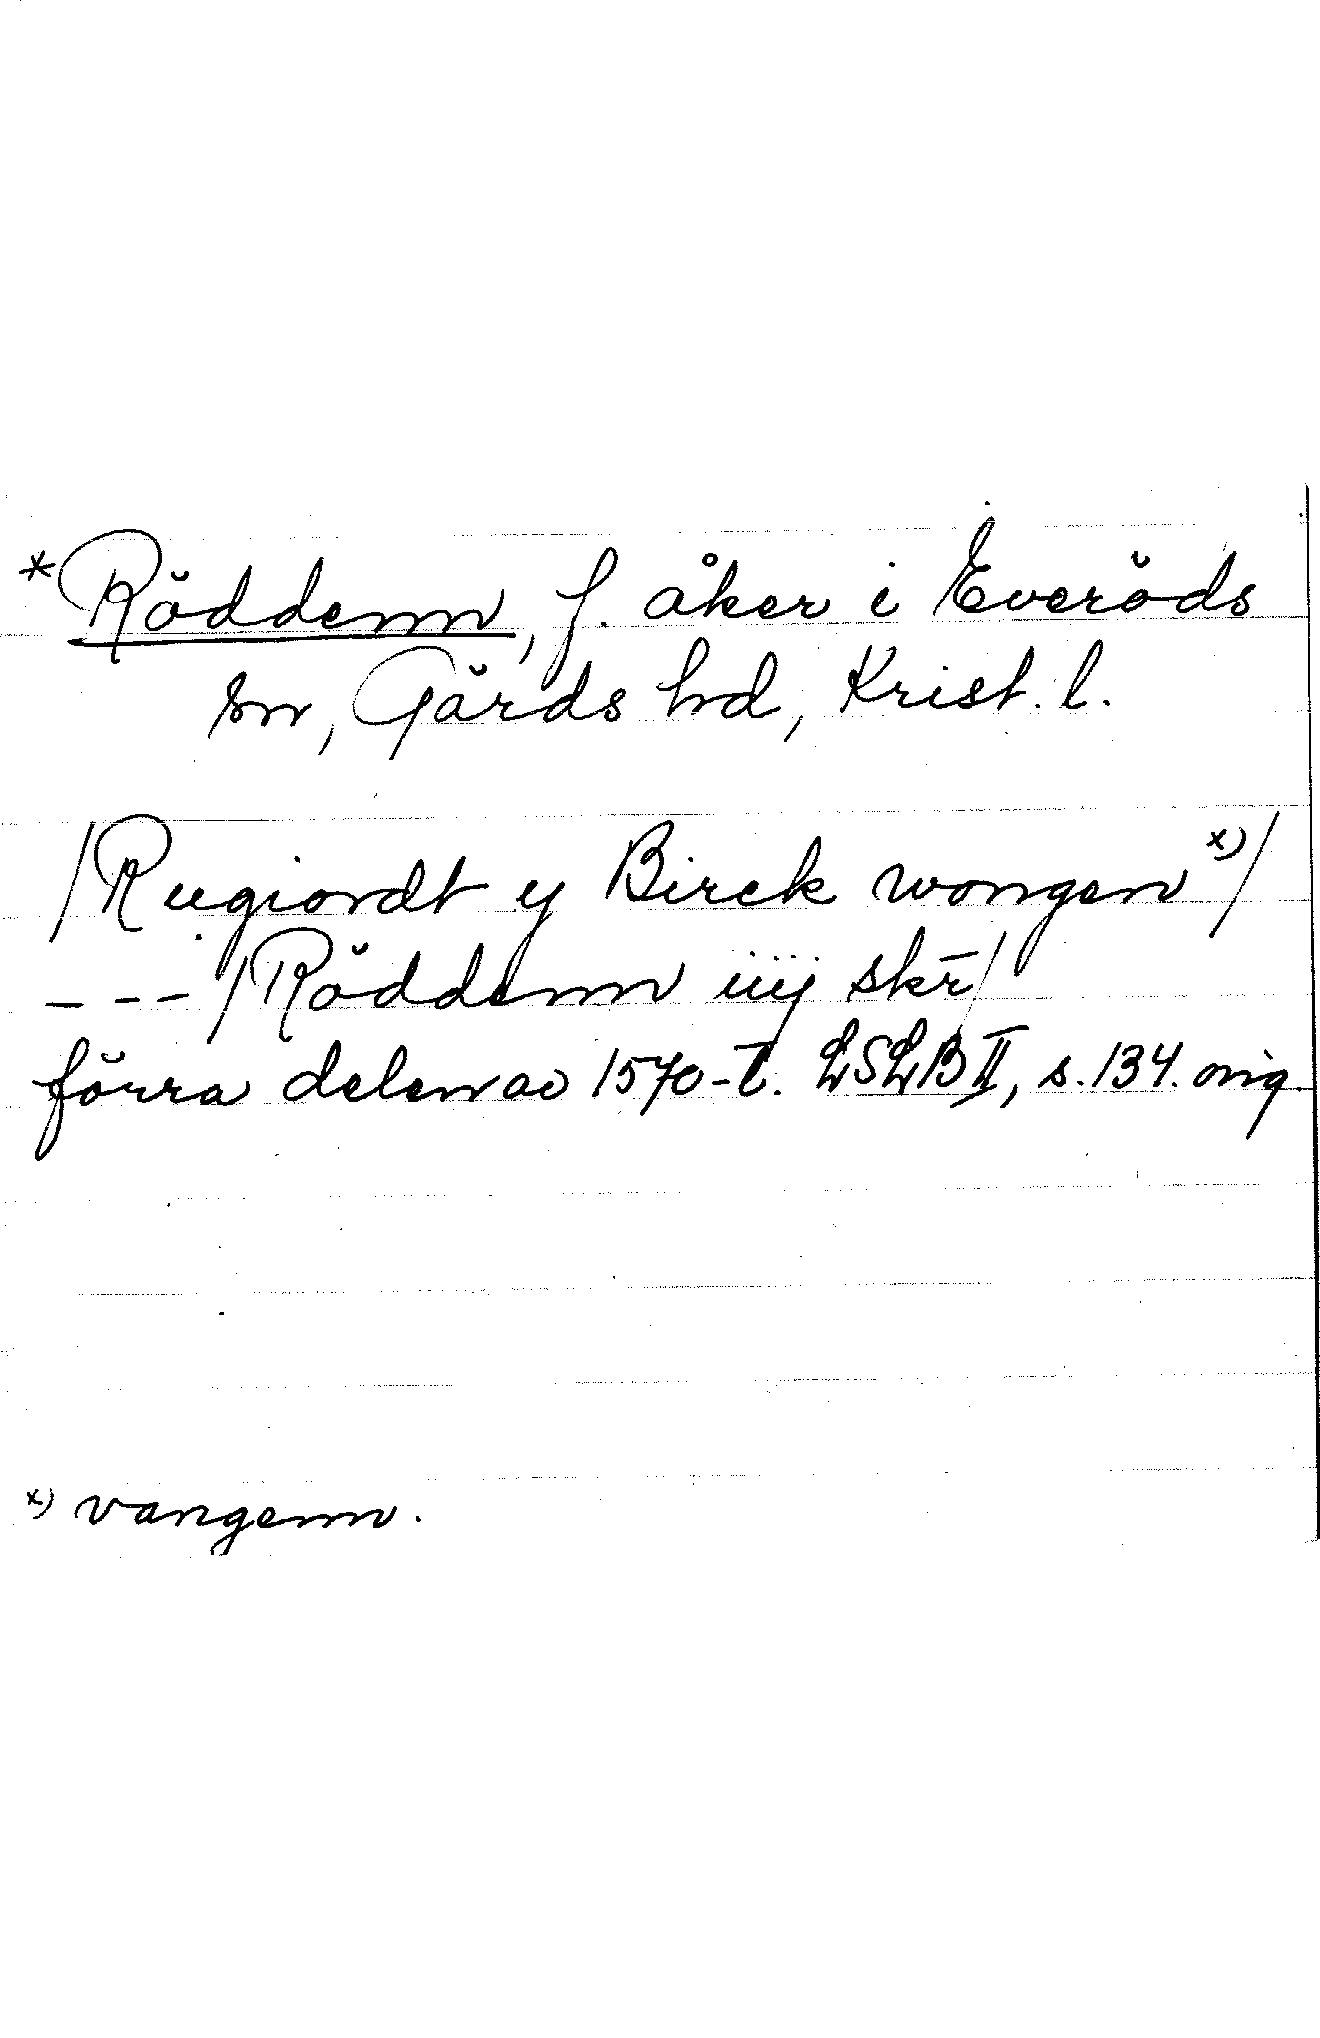 *Röddenn, f. åker i Everöds
sn, Gärds hd, Krist. l.
/Rugiordt y Birck wongen x)/
--- /Röddenn iiij skr̄/
förra delen av 1570-t. LSLB II, s. 134. orig.
x) vangenn.